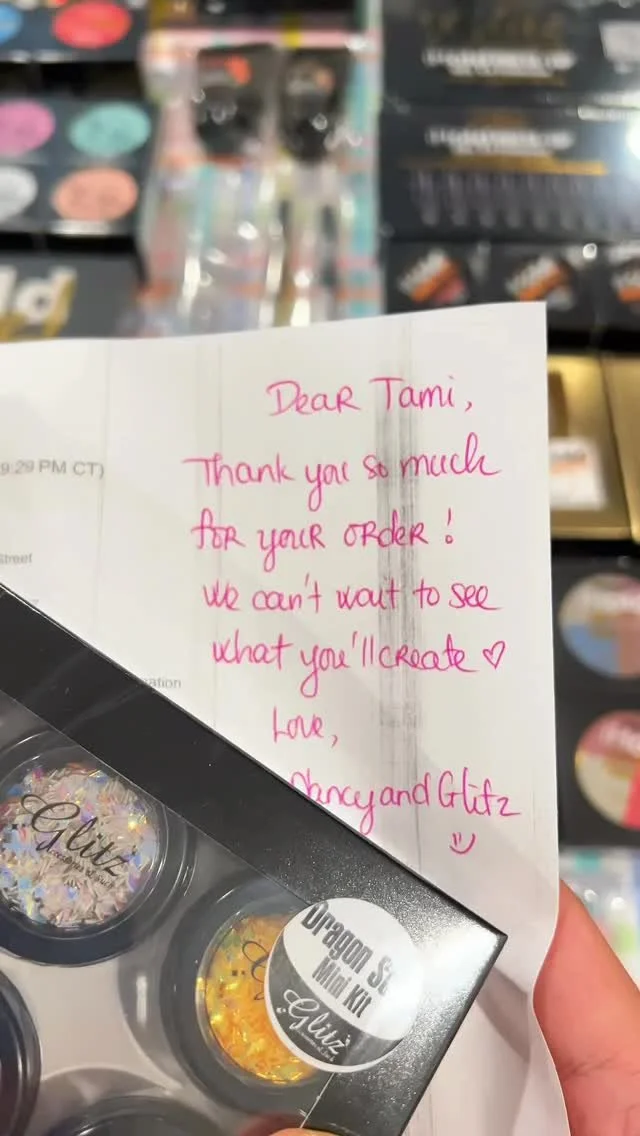 Dear Tami,
Thank you so much
for your order!
We can't wait to see
what you'll create ♡
Love,
Nancy and Glitz
9:29 PM CT)
Street
ation
Glitz
Dragon
Mini Kit
Glitz